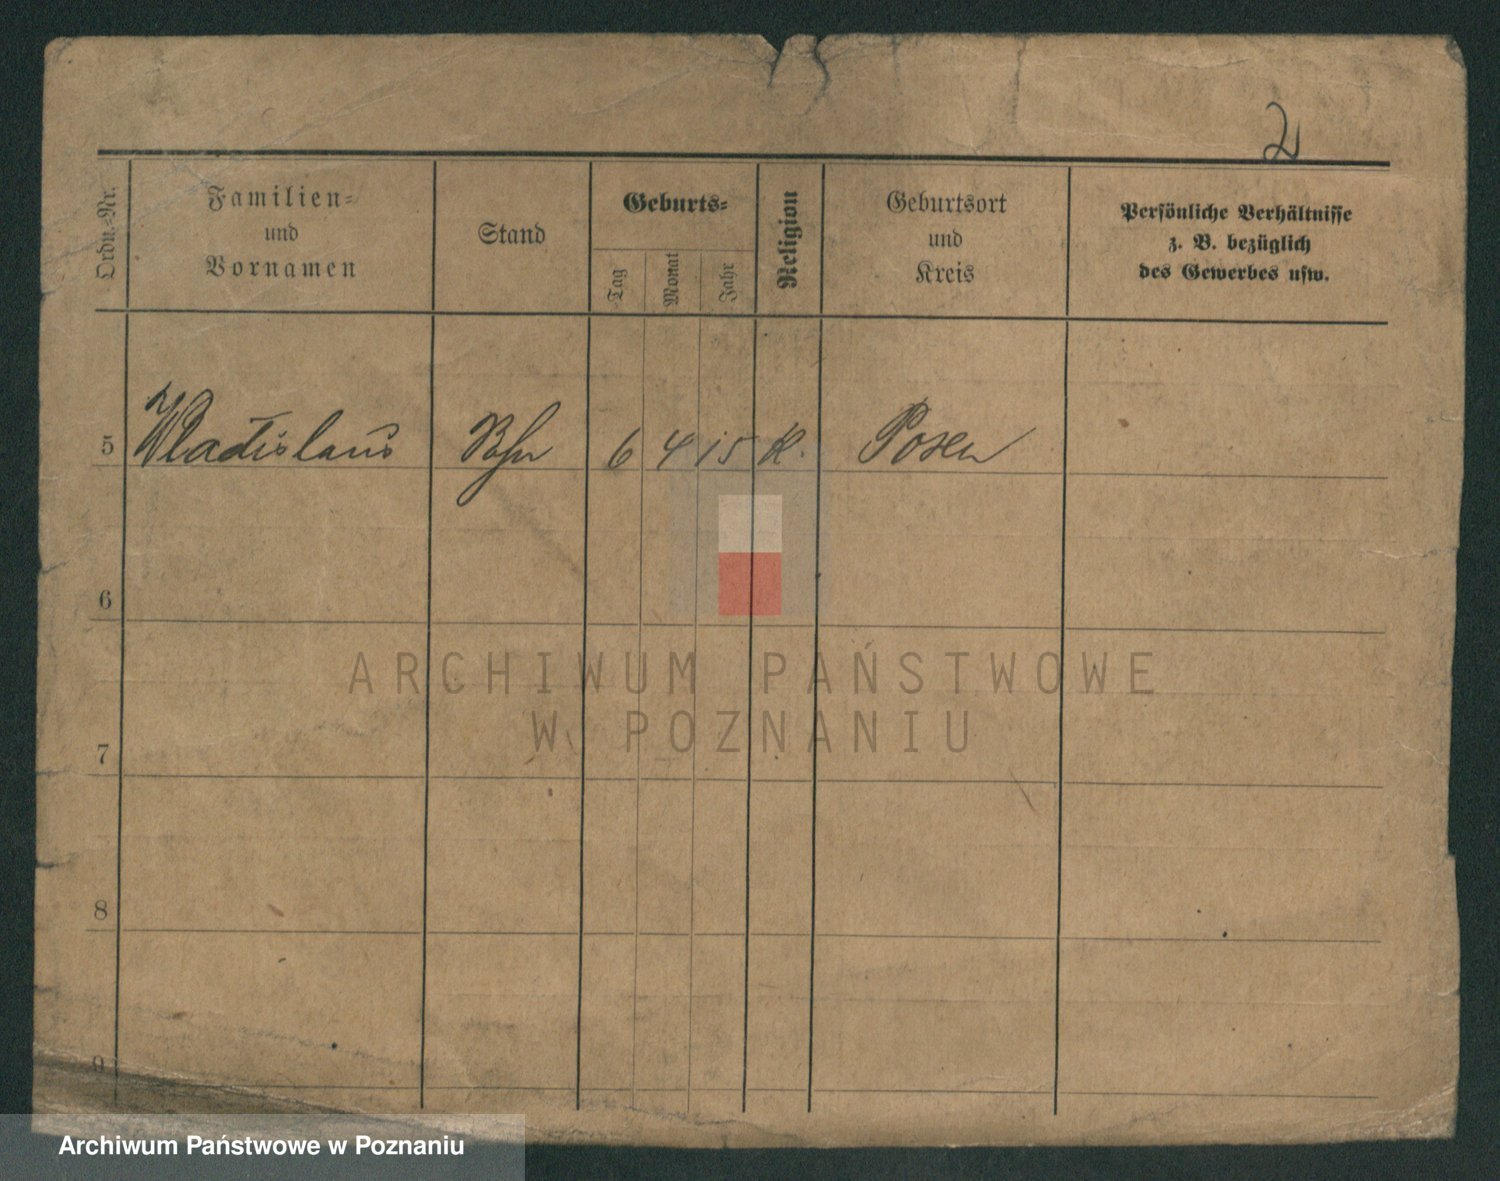 2
Ordn.-Nr.
Familien-
und
Vornamen
Stand
Geburts-
Tag
Monat
Jahr
Religion
Geburtsort
und
Kreis
Persönliche Verhältnisse
z. B. bezüglich
des Gewerbes usw.
5 Wladislaus 6 4 15 K. Posen
6
7
8
9
ARCHIWUM PAŃSTWOWE
W POZNANIU
Archiwum Państwowe w Poznaniu